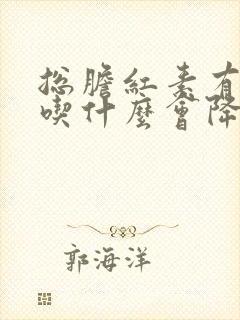 總膽紅素有
喫什麼會降
郭海洋